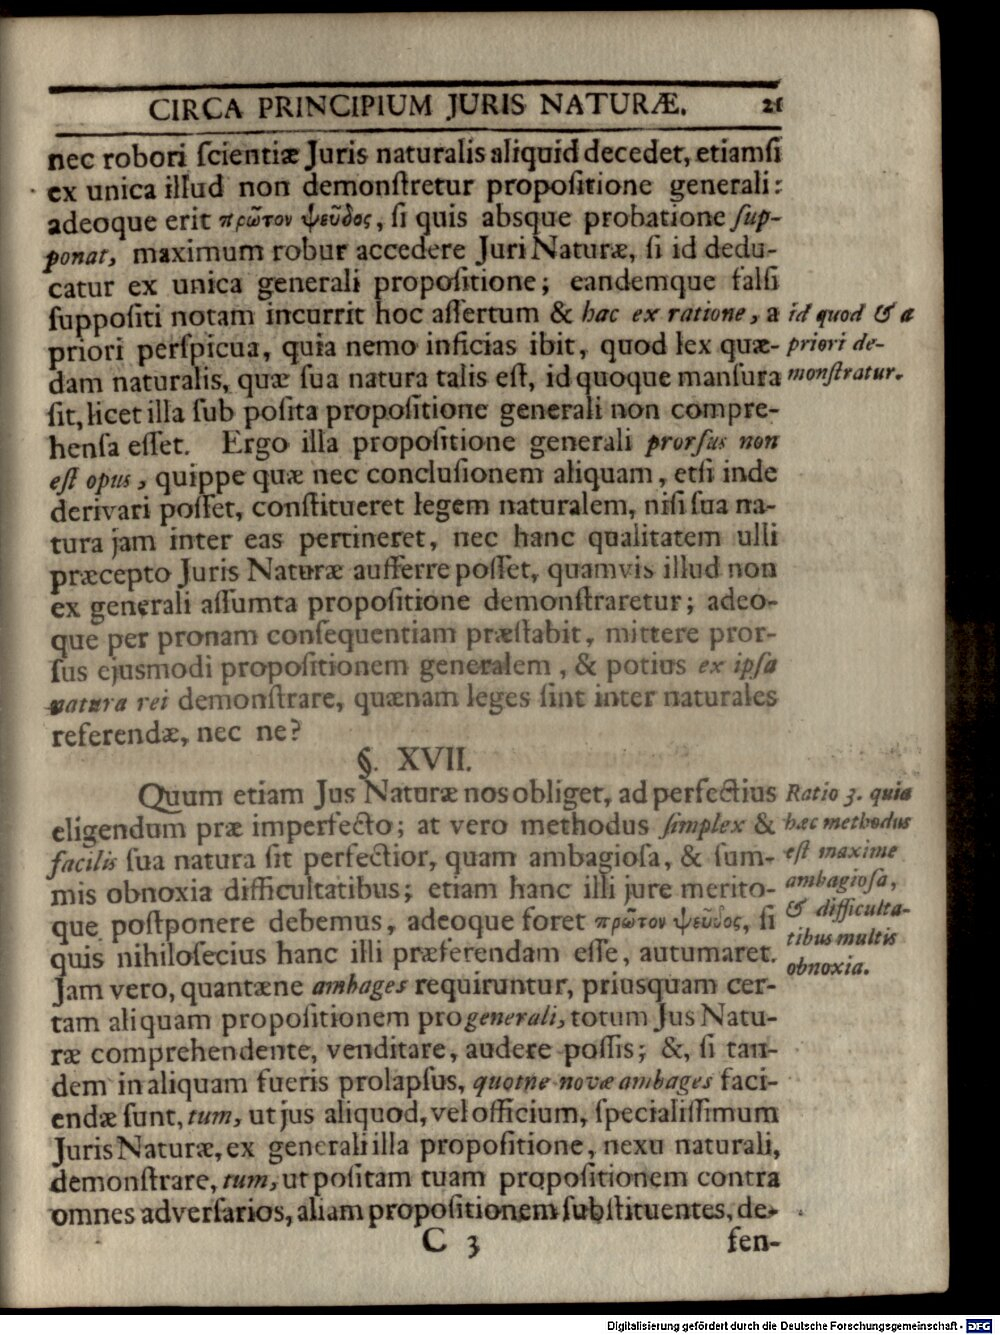 CIRCA PRINCIPIUM JURIS NATURÆ. 21
nec robori ſcientiæ Juris naturalis aliquid decedet, etiamſi
ex unica illud non demonſtretur propoſitione generali:
adeoque erit πρῶτον ψεῦδος, ſi quis absque probatione ſup-
ponat, maximum robur accedere Juri Naturæ, ſi id dedu-
catur ex unica generali propoſitione; eandemque falſi
ſuppoſiti notam incurrit hoc aſſertum & hac ex ratione, a
priori perſpicua, quia nemo inficias ibit, quod lex quæ-
dam naturalis, quæ ſua natura talis eſt, id quoque manſura
ſit, licet illa ſub poſita propoſitione generali non compre-
henſa eſſet. Ergo illa propoſitione generali prorſus non
eſt opus, quippe quæ nec concluſionem aliquam, etſi inde
derivari poſſet, conſtitueret legem naturalem, niſi ſua na-
tura jam inter eas pertineret, nec hanc qualitatem ulli
præcepto Juris Naturæ aufferre poſſet, quamvis illud non
ex generali aſſumta propoſitione demonſtraretur; adeo-
que per pronam conſequentiam præſtabit, mittere pror-
ſus ejusmodi propoſitionem generalem, & potius ex ipſa
natura rei demonſtrare, quænam leges ſint inter naturales
referendæ, nec ne?
id quod & a
priori de-
monſtratur.
§. XVII.
Quum etiam Jus Naturæ nos obliget, ad perfectius
eligendum præ imperfecto; at vero methodus ſimplex &
facilis ſua natura ſit perfectior, quam ambagioſa, & ſum-
mis obnoxia difficultatibus; etiam hanc illi jure merito-
que poſtponere debemus, adeoque foret πρῶτον ψεῦδος, ſi
quis nihiloſecius hanc illi præferendam eſſe, autumaret.
Jam vero, quantæne ambages requiruntur, priusquam cer-
tam aliquam propoſitionem pro generali, totum Jus Natu-
ræ comprehendente, venditare, audere poſſis; &, ſi tan-
dem in aliquam fueris prolapſus, quotne novæ ambages faci-
endæ ſunt, tum, ut jus aliquod, vel officium, ſpecialiſſimum
Juris Naturæ, ex generali illa propoſitione, nexu naturali,
demonſtrare, tum, ut poſitam tuam propoſitionem contra
omnes adverſarios, aliam propoſitionem ſubſtituentes, de-
Ratio 3. quia
hæc methodus
eſt maxime
ambagioſa,
& difficulta-
tibus multis
obnoxia.
C 3 fen-
Digitalisierung gefördert durch die Deutsche Forschungsgemeinschaft - DFG